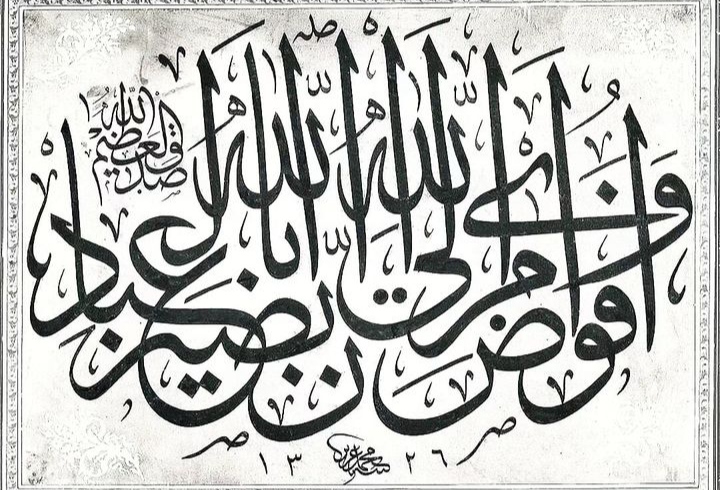 وأفوض أمري إلى الله إن الله بصير بالعباد
صدق الله العظيم
محمد عزيز
١٣٢٦